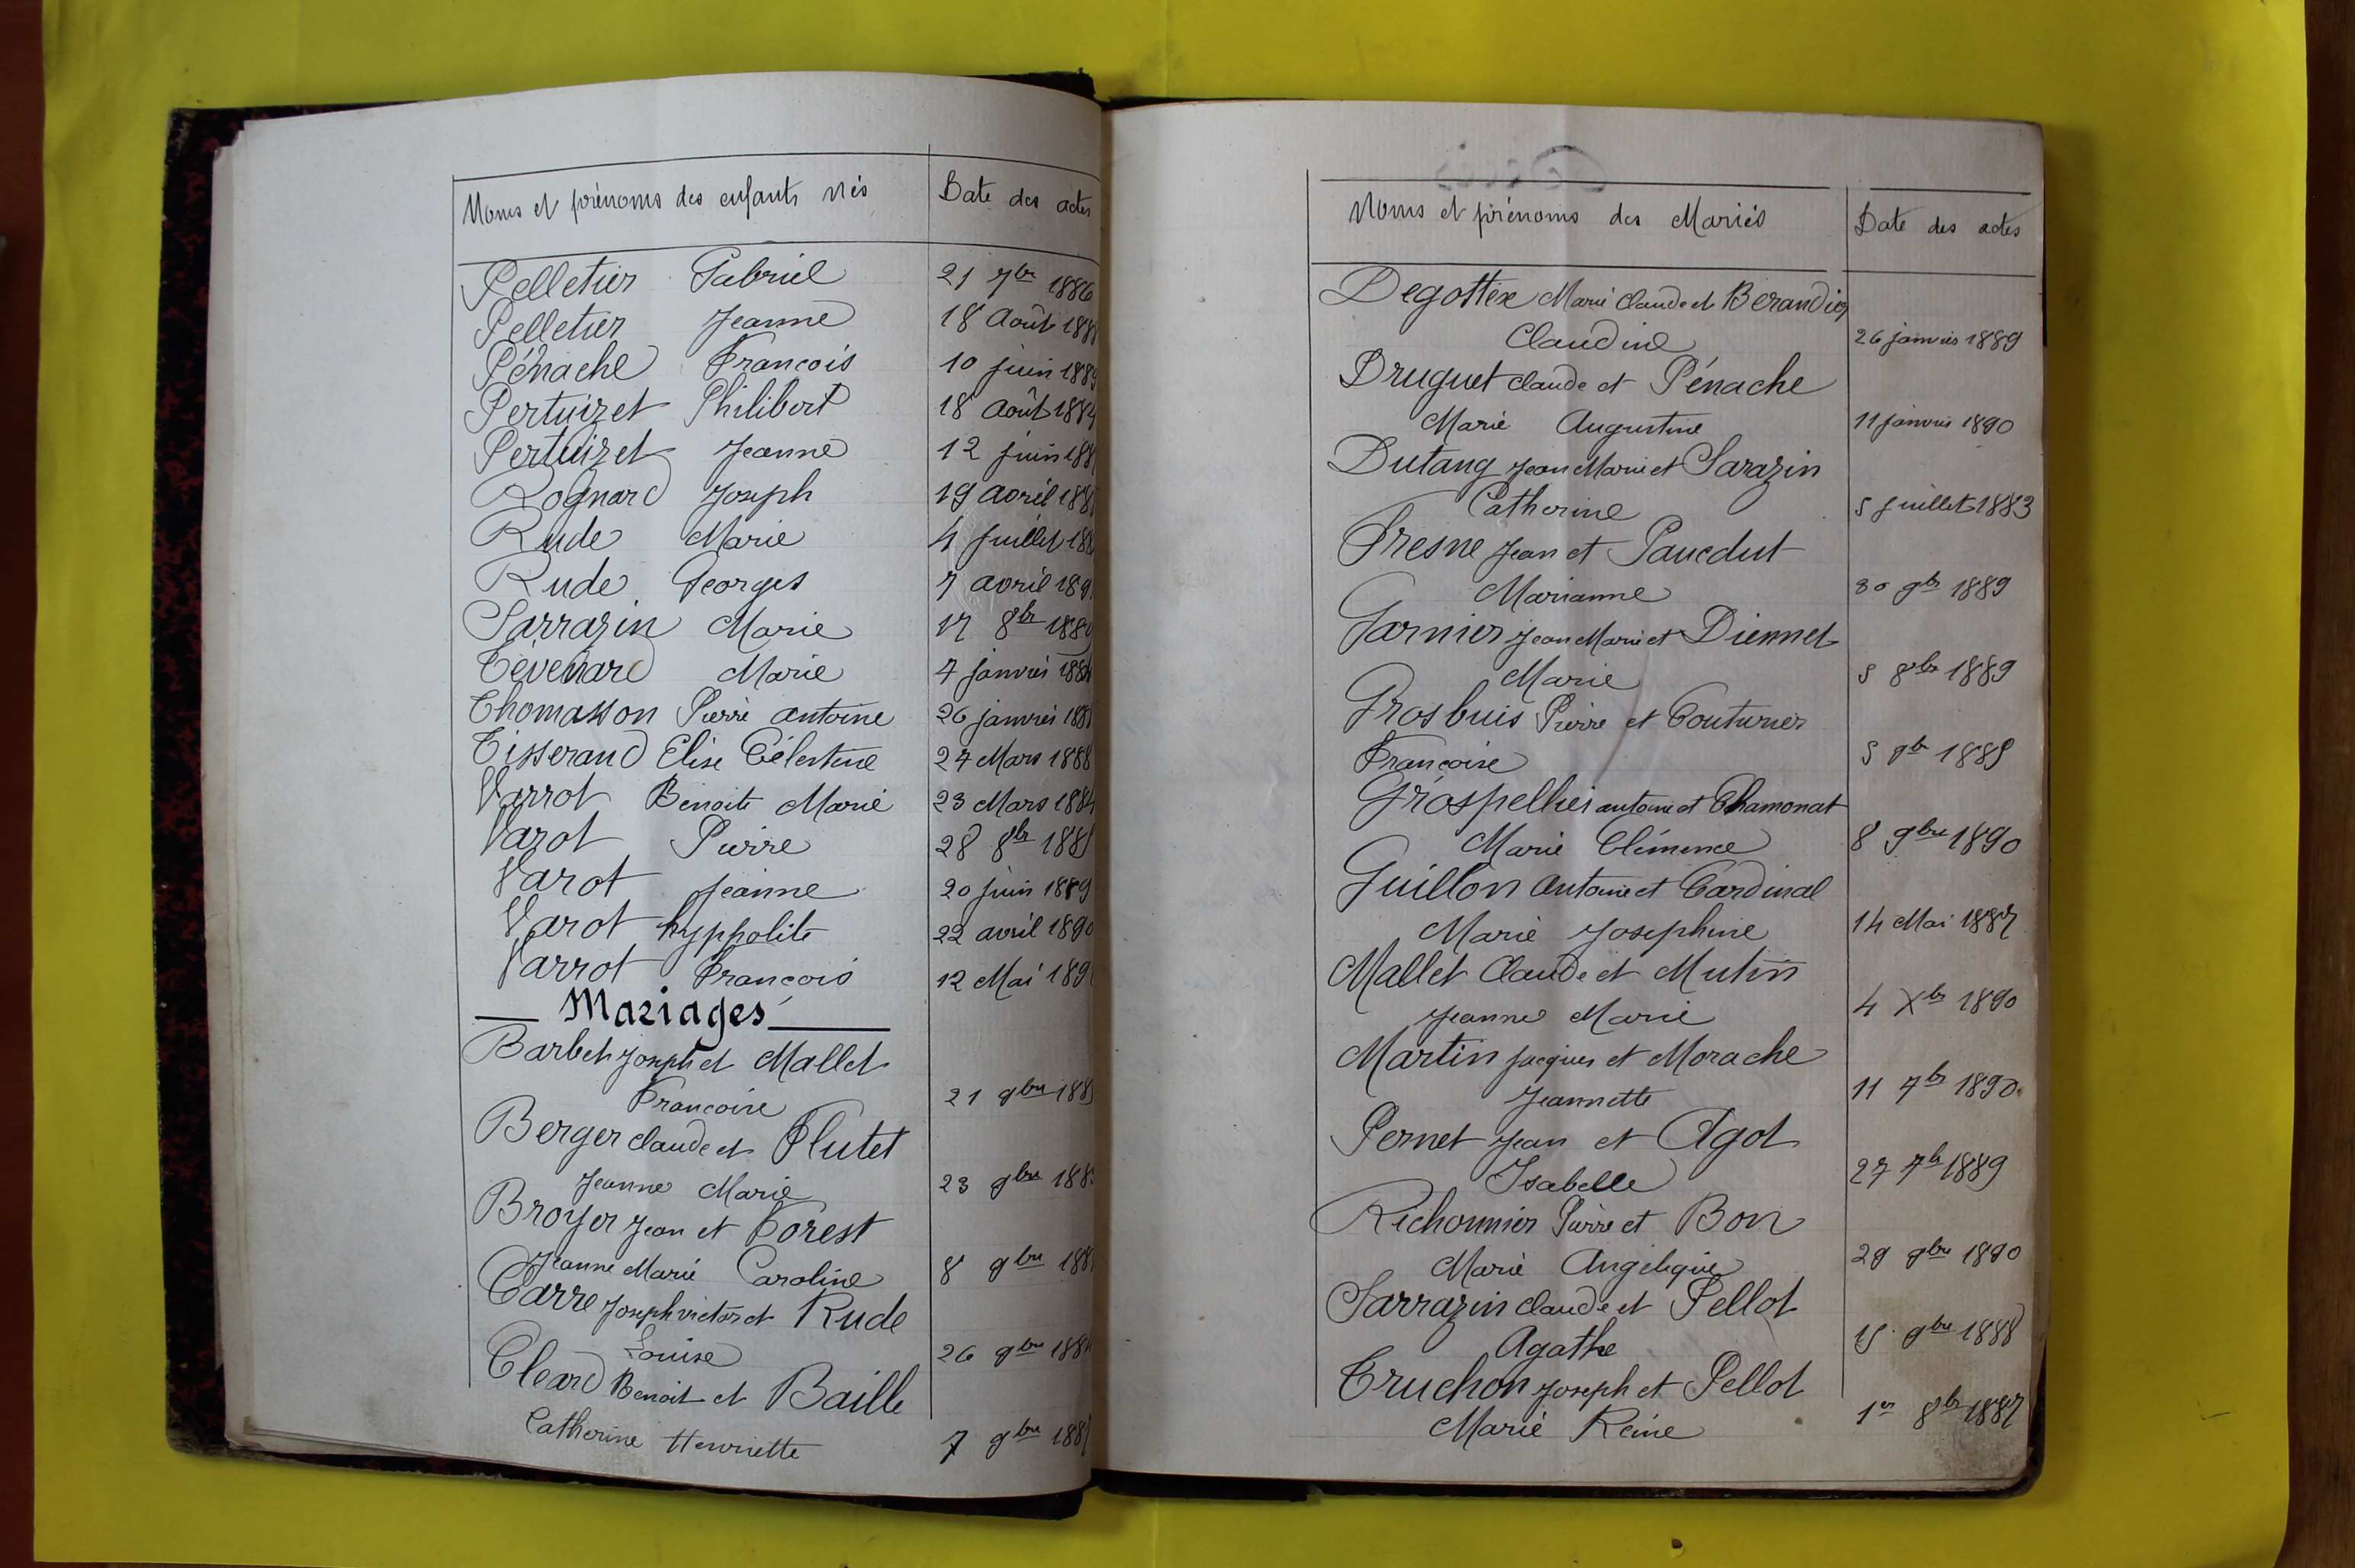 Noms et prénoms des enfants nés Date des actes
Pelletier Gabriel 21 7bre 1886
Pelletier Jeanne 18 Août
Pénache François 10 juin
Pertuizet Philibert 18 Août
Pertuizet Jeanne 12 juin
Rognard Joseph 19 avril
Rude Marie 4 juillet
Rude Georges 7 avril
Sarrazin Marie 17 8bre
Tévenard Marie 7 janvier
Thomasson Pierre antoine 26 janvier
Tisserand Elise Célestine 27 Mars 1888
Varrot Benoite Marie 23 Mars 1884
Varot Pierre 28 8bre
Varot Jeanne 20 juin 1889
Varot hyppolite 22 avril 1890
Varrot François 12 Mai
Mariages
Barbet Joseph et Mallet
Françoise 21 9bre
Berger claude et Flutet
Jeanne Marie 23 9bre
Broyer Jean et Forest
Jeanne Marie Caroline 8 9bre
Carre Joseph victor et Rude
Louise 26 9bre
Cleard Benoit et Baille
Catherine Henriette 7 9bre
Noms et prénoms des Mariés Date des actes
Degottex Marie Claude et Berandier
Claudine 26 janvier 1889
Druguet claude et Pénache
Marie Augustine 11 janvier 1890
Dutang Jean Marie et Sarazin
Catherine 5 juillet 1883
Fresne Jean et Paucdut
Marianne 30 9bre 1889
Garnier Jean Marie et Diennet
Marie 5 8bre 1889
Grosbuis Pierre et Couturier
Françoise 5 9bre
Grospellier antoine et Chamonat
Marie Clémence 8 9bre 1890
Guillon Antoine et Cardinal
Marie Josephine 14 Mai 1887
Mallet Claude et Mutin
Jeanne Marie 4 Xbre 1890
Martin Jacques et Morache
Jeannette 11 7bre 1890
Pernet Jean et Agot
Isabelle 27 7bre 1889
Richonnier Pierre et Bon
Marie Angelique 29 9bre 1890
Sarrazin claude et Pellot
Agathe 15 9bre 1888
Truchon Joseph et Pellot
Marie Reine 1er 8bre 1887